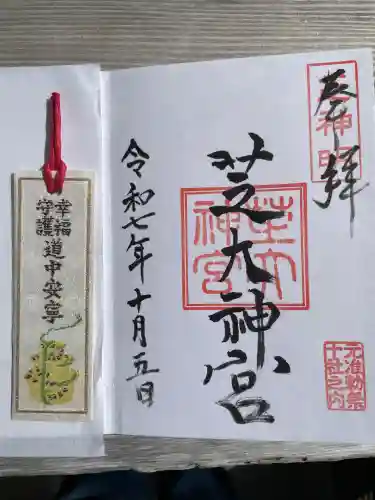 奉拝
芝大神宮
芝大神宮
元准勅祭
十社之内
令和七年十月五日
幸福
守護
道中安寧